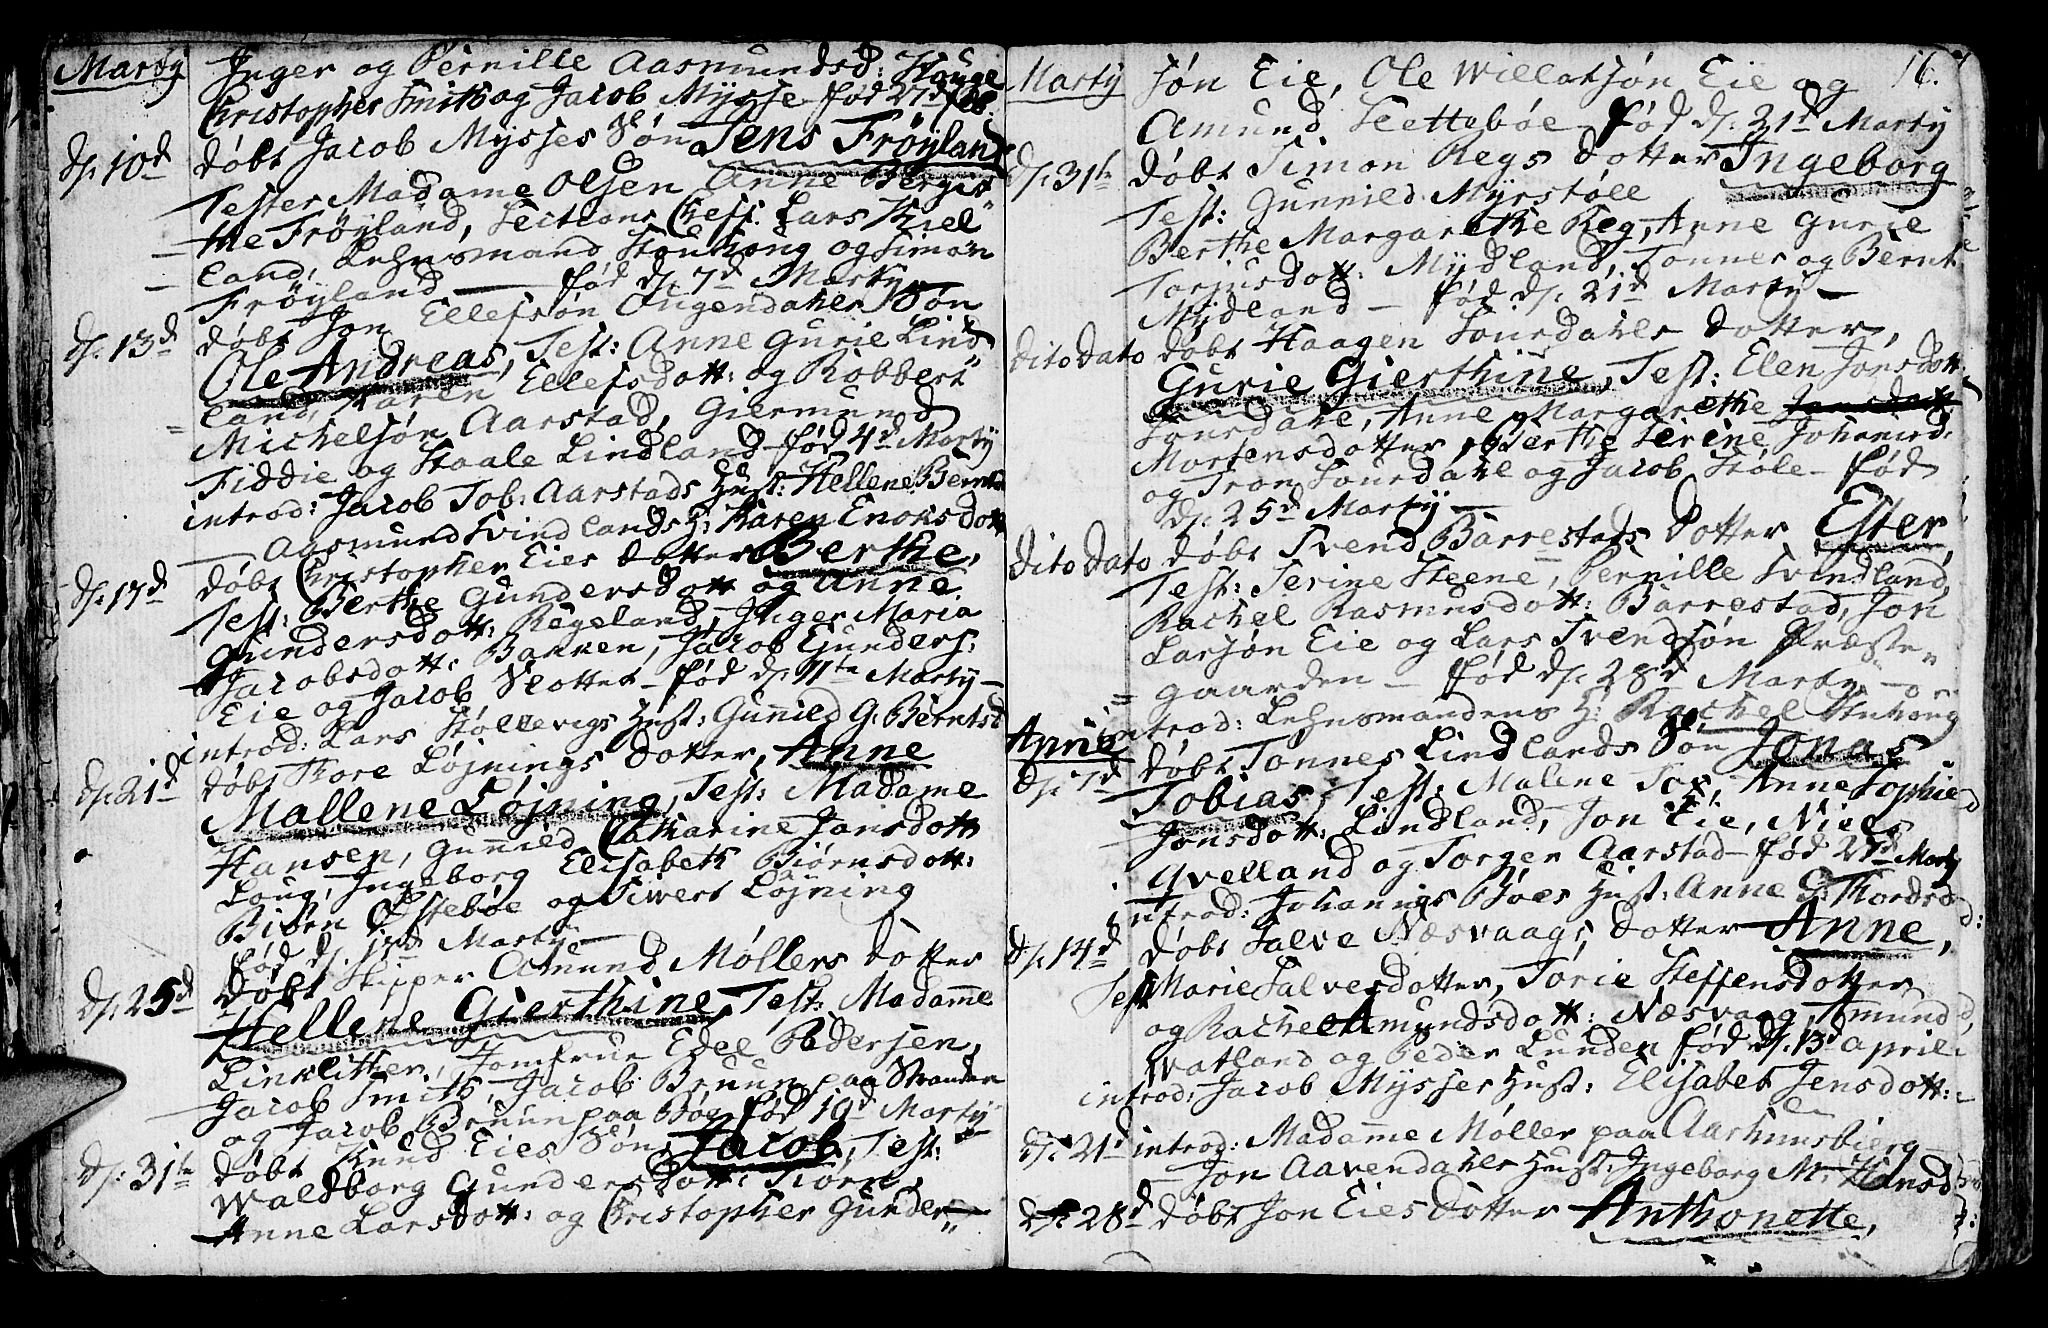 Martÿ
Inger og Pernille Aasmundsd: Hauge
Christopher Smith og Jacob Mysse fød 27d Feb.
d. 10d døbt Jacob Mysses Søn Jens Frøyland
Tester Madame Olsen Anne Berget
the Frøyland, Sections Chef: Lars Kiel
land, Lehnsmand Stenhong og Simon
Frøyland — fød d. 7d Marty
d. 13d døbt Jon Ellefsøn Ougendahls Søn
Ole Andreas, Test: Anne Gurie Lind
land, Karen Ellefsdott: og Robbert
Michelsøn Aarstad, Giermund
Fiddie og Staale Lindland fød 4d Marty
introd: Jacob Tob: Aarstads Hust: Hellene Bernts
— Aasmund Svindlands H: Karen Enoksdott
d. 17d døbt Christopher Eies Dotter Berthe,
Test: Berthe Gundersdott og Anne
Gundersdott: Regeland, Inger Maria
Jacobsdott: Bakken, Jacob Gunders:
Eie og Jacob Slotter — fød d. 11te Marty —
introd: Lars Stollevigs Hust: Gunild G: Berntsd
d. 21d døbt Thore Løjnings Dotter, Anne
Mallene Løjning, Test: Madame
Hansen, Gunild Catharine Jansdott
Loug, Ingeborg Elisabeth Biørnsdott:
Biørn Østebøe og Sivert Løjning
fød d. 17d Marty —
d. 25d døbt Skipper Amund Møllers Dotter
Hellene Gierthine, Test: Madame
Linklither, Jomfrue Edel Pedersen,
Jacob Smith, Jacob Bruun paa Stranden
og Jacob Bruun paa Bøe fød 19d Marty
d. 31te døbt Knud Eies Søn, Jacob, Test:
Waldborg Gundersdott: Tiørn,
Anne Larsdott: og Christopher Gunder
16.
Marty søn Eie, Ole Willatsøn Eie og
Amund Slettebøe fød d. 21d Marty
d. 31te døbt Simon Regs Dotter Ingeborg
Test: Gunnild Myrstøll
Berthe Margarethe Reg, Anne Gurie
Torjusdott: Mydland, Tønnes og Bernt
Mydland — fød d. 21d Marty —
dito dato døbt Haagen Sourdahls Dotter,
Gurie Gierthine, Test: Elen Jonsdott
Sourdahl, Anne Margarethe Jansdott
Mortensdotter, Berthe Serine Johannesd:
og Tron Sourdahl og Jacob Støle — fød
d. 25d Marty —
dito dato døbt Svend Barrestads Dotter Ester,
Test: Serine Steene, Pernille Svindland,
Rachel Rasmusdott: Barrestad, Jon
Larsøn Eie og Lars Svendsøn Præste
gaarden — fød d. 28d Marty —
introd: Lehnsmandens H: Rachel Stenhong
April
d. 7d døbt Tønnes Lindlands Søn Jonas
Tobias, Test: Malene Tox, Anne Sophie
Jonsdott: Lindland, Jon Eie, Niels
Qvelland og Torger Aarstad — fød 27d Marty
introd: Johannis Bøes Hust: Anne G: Thordsd:
d. 14d døbt Salve Næsvaags Dotter Anne,
Test Marie Salvesdotter, Torie Steffensdotter
og Rachel Amundsdott: Næsvaag, Amund
Watland og Peder Lunden fød d. 13d April
introd: Jacob Mysses Hust: Elisabet Jensdott:
d. 21d introd: Madamme Møller paa Aarhuusbierg
— Jon Aavendahls Hust: Ingeborg M: Hansd
d. 28d døbt Jon Eies Dotter Anthonette,